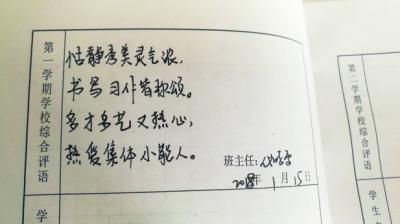 第一学期学校综合评语
恬静秀美灵气浓,
书写习作皆称颂。
多才多艺又热心,
热爱集体小能人。
班主任:
2018年1月15日
第二学期学校综合评语
学生
学